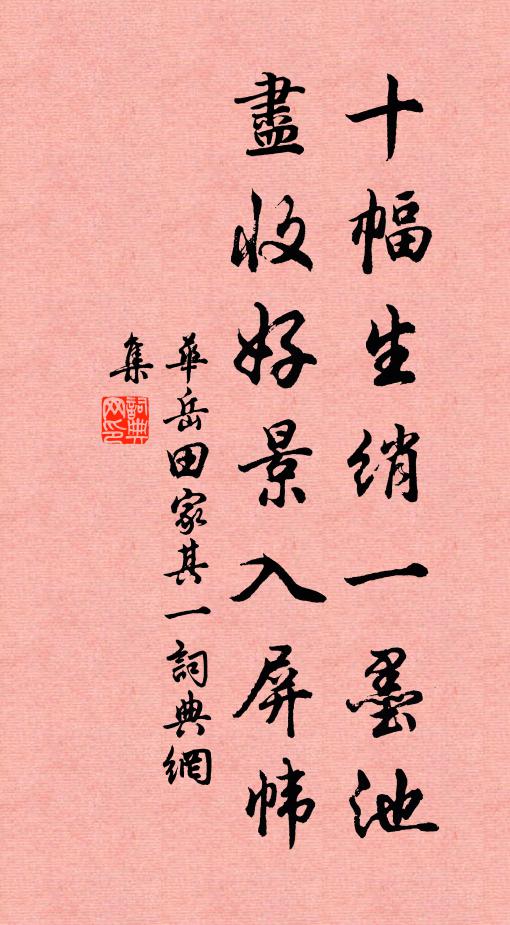 十幅生綃一墨池
盡收好景入屏幃
華岳田家其一詞典網
集
詞典
网印